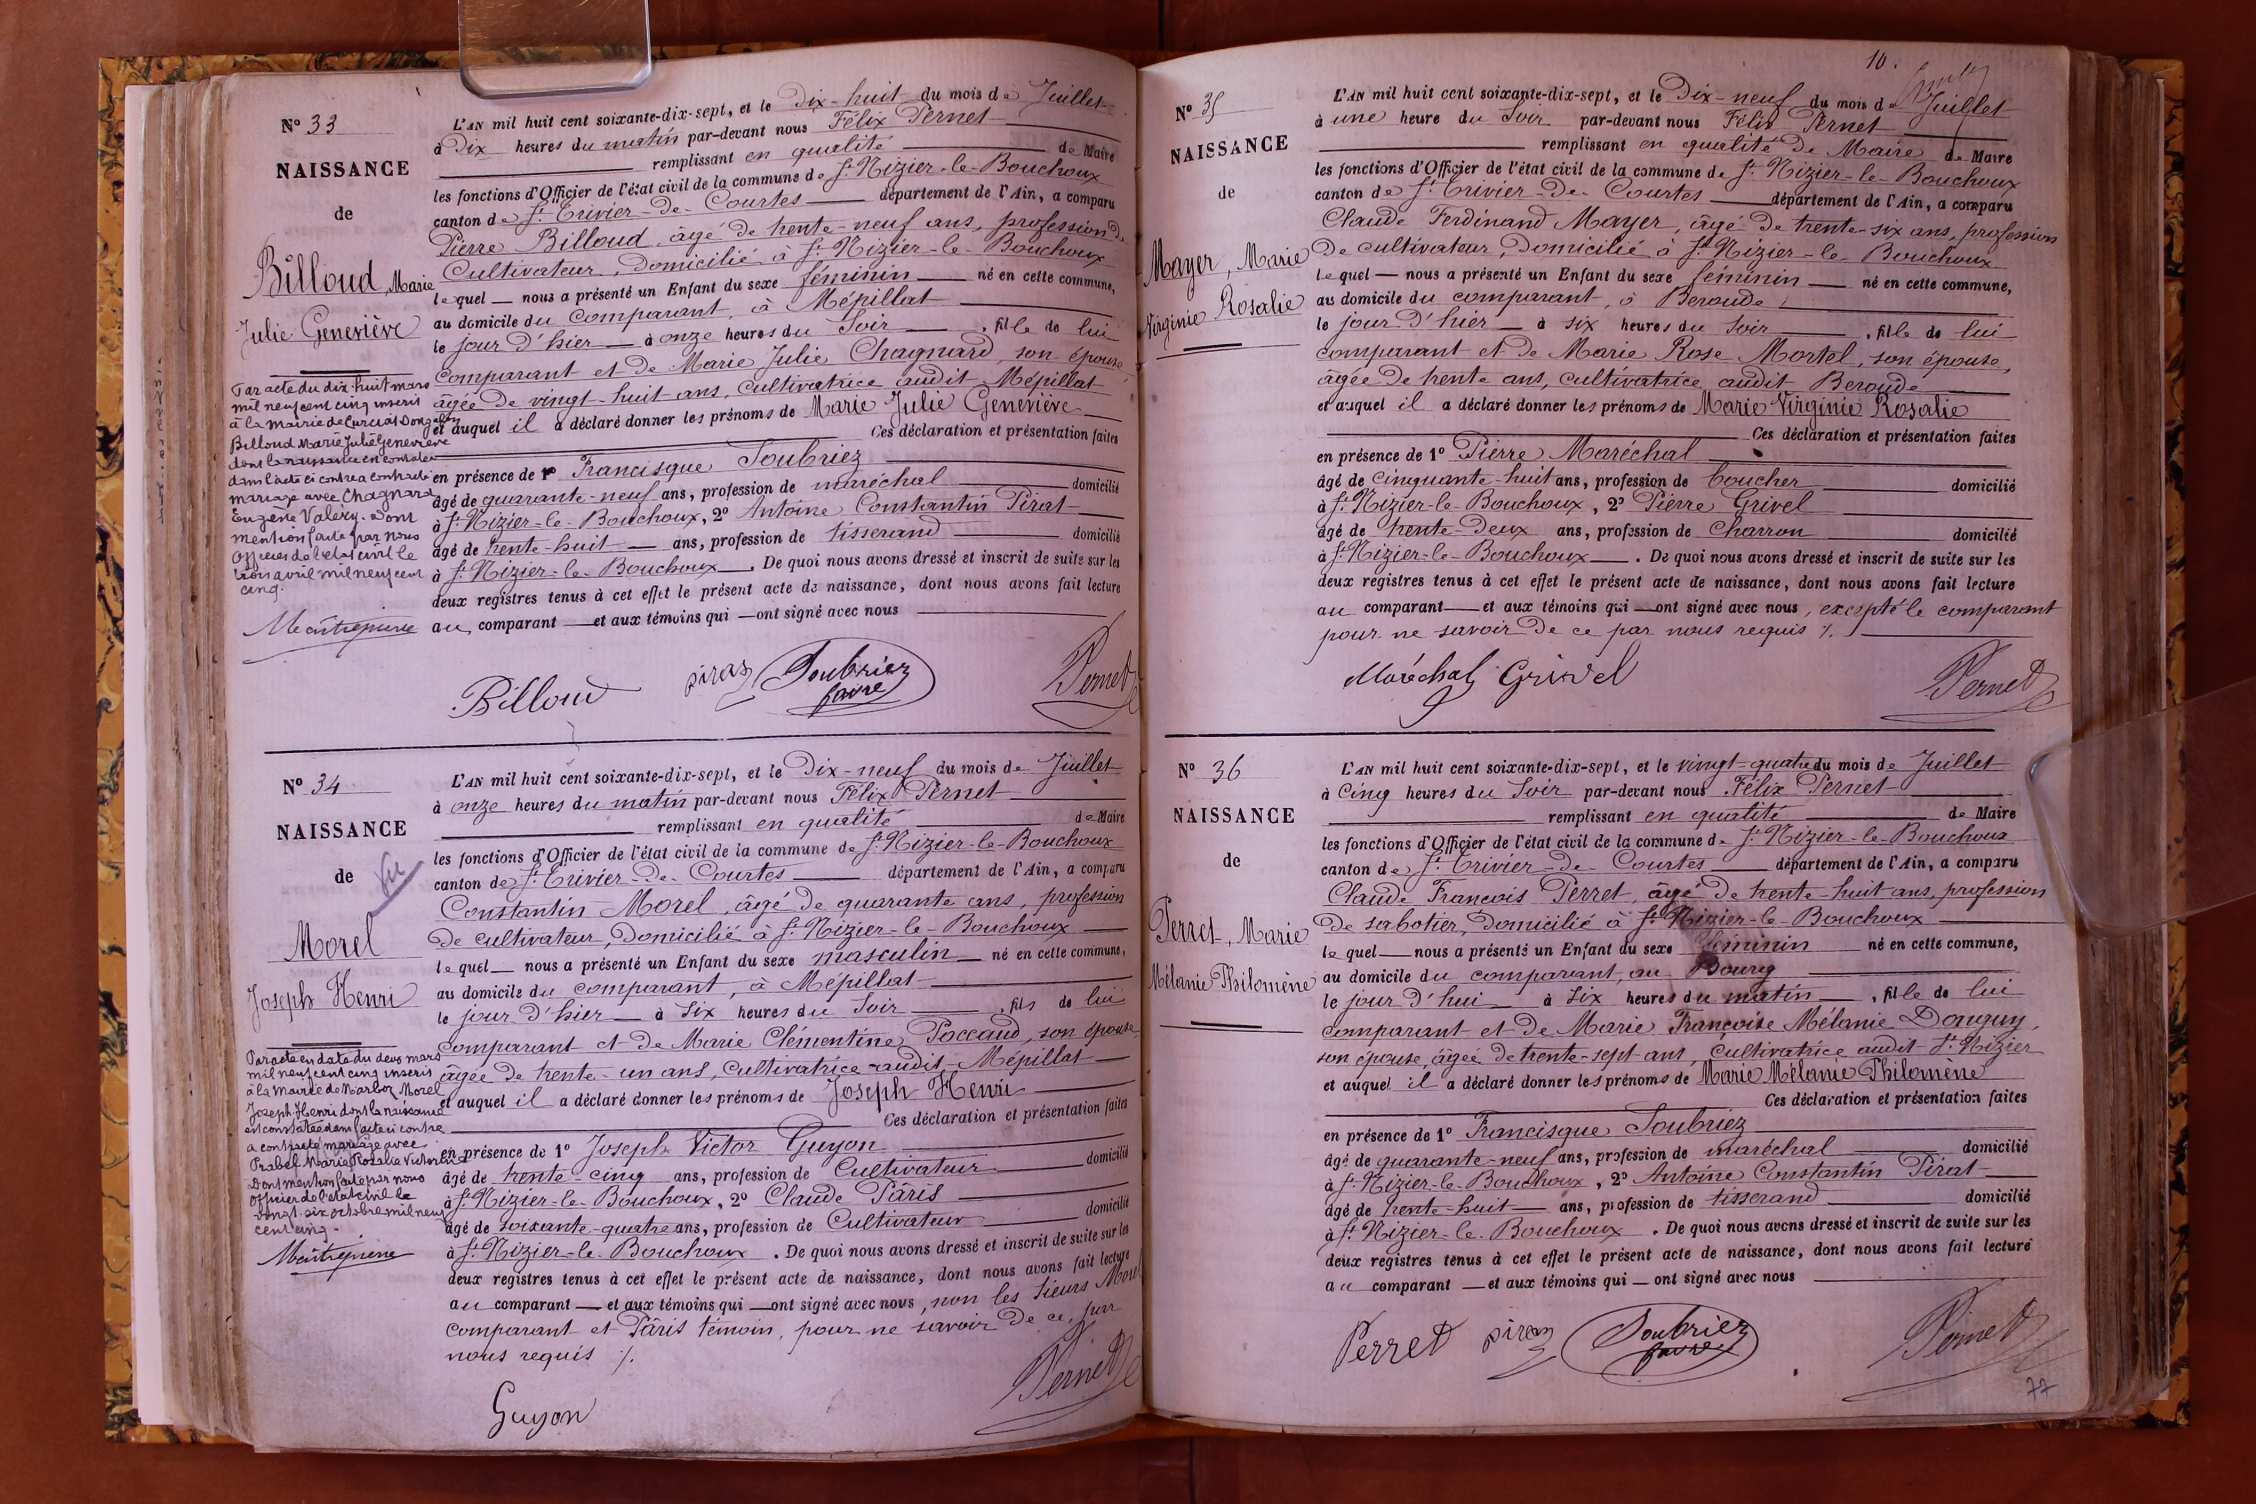 N° 33
NAISSANCE
de
Billoud, Marie
Julie Geneviève
Par acte du dix-huit mars
mil neuf cent cinq inscrit
à la mairie de Curciat Dongalon
Billoud Marie Julie Geneviève
dont la naissance est constatée
dans l'acte ci contre a contracté
mariage avec Chagnard
Eugène Valéry. Dont
mention faite par nous
Officier de l'état civil le
trois avril mil neuf cent
cinq.
L'AN mil huit cent soixante-dix-sept, et le Dix-huit du mois de Juillet
à Dix heures du matin par-devant nous Félix Pernet
remplissant en qualité de Maire
les fonctions d'Officier de l'état civil de la commune de St Nizier-le-Bouchoux
canton de St Trivier-De-Courtes département de l'Ain, a comparu
Pierre Billoud, âgé de trente-neuf ans, profession de
Cultivateur, Domicilié à St Nizier-le-Bouchoux
lequel nous a présenté un Enfant du sexe féminin né en cette commune,
au domicile du comparant, à Mépillat
le jour d'hier à onze heures du Soir, fille de lui
comparant et de Marie Julie Chagnard, son épouse,
âgée de vingt-huit ans, cultivatrice audit Mépillat
et auquel il a déclaré donner les prénoms de Marie Julie Geneviève
Ces déclaration et présentation faites
en présence de 1° Francisque Soubriez
âgé de quarante-neuf ans, profession de maréchal domicilié
à St Nizier-le-Bouchoux, 2° Antoine Constantin Pirat
âgé de trente-huit ans, profession de tisserand domicilié
à St Nizier-le-Bouchoux. De quoi nous avons dressé et inscrit de suite sur les
deux registres tenus à cet effet le présent acte de naissance, dont nous avons fait lecture
au comparant et aux témoins qui ont signé avec nous
Billoud Soubriez favre Pernet
N° 34
NAISSANCE
de
Morel
Joseph Henri
Par acte en date du deux mars
mil neuf cent cinq inscrit
à la Mairie de Marboz Morel
Joseph Henri dont la naissance
est constatée dans l'acte ci contre
a contracté mariage avec
Prabel Marie Rosalie Victorine
Dont mention faite par nous
Officier de l'état civil le
vingt-six octobre mil neuf
cent cinq.
L'AN mil huit cent soixante-dix-sept, et le Dix-neuf du mois de Juillet
à onze heures du matin par-devant nous Félix Pernet
remplissant en qualité de Maire
les fonctions d'Officier de l'état civil de la commune de St Nizier-le-Bouchoux
canton de St Trivier-De-Courtes département de l'Ain, a comparu
Constantin Morel, âgé de quarante ans, profession
De cultivateur, Domicilié à St Nizier-le-Bouchoux
lequel nous a présenté un Enfant du sexe masculin né en cette commune,
au domicile du comparant, à Mépillat
le jour d'hier à Six heures du Soir, fils de lui
comparant et de Marie Clémentine Poccaud, son épouse
âgée de trente-un ans, cultivatrice audit Mépillat
et auquel il a déclaré donner les prénoms de Joseph Henri
Ces déclaration et présentation faites
en présence de 1° Joseph Victor Guyon
âgé de trente-cinq ans, profession de Cultivateur domicilié
à St Nizier-le-Bouchoux, 2° Claude Pâris
âgé de soixante-quatre ans, profession de Cultivateur domicilié
à St Nizier-le-Bouchoux. De quoi nous avons dressé et inscrit de suite sur les
deux registres tenus à cet effet le présent acte de naissance, dont nous avons fait lecture
au comparant et aux témoins qui ont signé avec nous, non les sieurs Morel
comparant et Pâris témoin, pour ne savoir De ce par
nous requis ./.
Guyon Pernet
10.
N° 35
NAISSANCE
de
Mayer, Marie
Virginie Rosalie
L'AN mil huit cent soixante-dix-sept, et le Dix-neuf du mois de Juillet
à une heure du Soir par-devant nous Félix Pernet
remplissant en qualité De Maire de Maire
les fonctions d'Officier de l'état civil de la commune de St Nizier-le-Bouchoux
canton de St Trivier-De-Courtes département de l'Ain, a comparu
Claude Ferdinand Mayer, âgé de trente-six ans, profession
De cultivateur, Domicilié à St Nizier-le-Bouchoux
lequel nous a présenté un Enfant du sexe féminin né en cette commune,
au domicile du comparant, à Beroude
le jour d'hier à six heures du Soir, fille de lui
comparant et de Marie Rose Mortel, son épouse,
âgée De trente ans, cultivatrice audit Beroude
et auquel il a déclaré donner les prénoms de Marie Virginie Rosalie
Ces déclaration et présentation faites
en présence de 1° Pierre Maréchal
âgé de Cinquante-huit ans, profession de boucher domicilié
à St Nizier-le-Bouchoux, 2° Pierre Grivel
âgé de trente-Deux ans, profession de Charron domicilié
à St Nizier-le-Bouchoux. De quoi nous avons dressé et inscrit de suite sur les
deux registres tenus à cet effet le présent acte de naissance, dont nous avons fait lecture
au comparant et aux témoins qui ont signé avec nous, excepté le comparant
pour ne savoir De ce par nous requis ./.
Maréchal Grivel Pernet
N° 36
NAISSANCE
de
Perret, Marie
Mélanie Philomène
L'AN mil huit cent soixante-dix-sept, et le vingt-quatre du mois de Juillet
à Cinq heures du Soir par-devant nous Félix Pernet
remplissant en qualité de Maire
les fonctions d'Officier de l'état civil de la commune de St Nizier-le-Bouchoux
canton de St Trivier-De-Courtes département de l'Ain, a comparu
Claude François Perret, âgé De trente-huit ans, profession
De sabotier, Domicilié à St Nizier-le-Bouchoux
lequel nous a présenté un Enfant du sexe féminin né en cette commune,
au domicile du comparant, au Bourg
le jour d'hui à six heures du matin, fille de lui
comparant et De Marie Françoise Mélanie Donguy,
son épouse, âgée de trente-sept ans, Cultivatrice audit St Nizier
et auquel il a déclaré donner les prénoms de Marie Mélanie Philomène
Ces déclaration et présentation faites
en présence de 1° Francisque Soubriez
âgé de quarante-neuf ans, profession de maréchal domicilié
à St Nizier-le-Bouchoux, 2° Antoine Constantin Pirat
âgé de trente-huit ans, profession de tisserand domicilié
à St Nizier-le-Bouchoux. De quoi nous avons dressé et inscrit de suite sur les
deux registres tenus à cet effet le présent acte de naissance, dont nous avons fait lecture
au comparant et aux témoins qui ont signé avec nous
Perret Soubriez favre Pernet
77